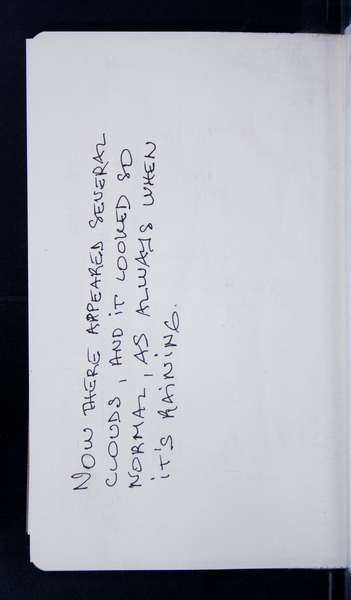 NOW THERE APPEARED SEVERAL
CLOUDS, AND IT LOOKED SO
NORMAL, AS ALWAYS WHEN
IT'S RAINING.